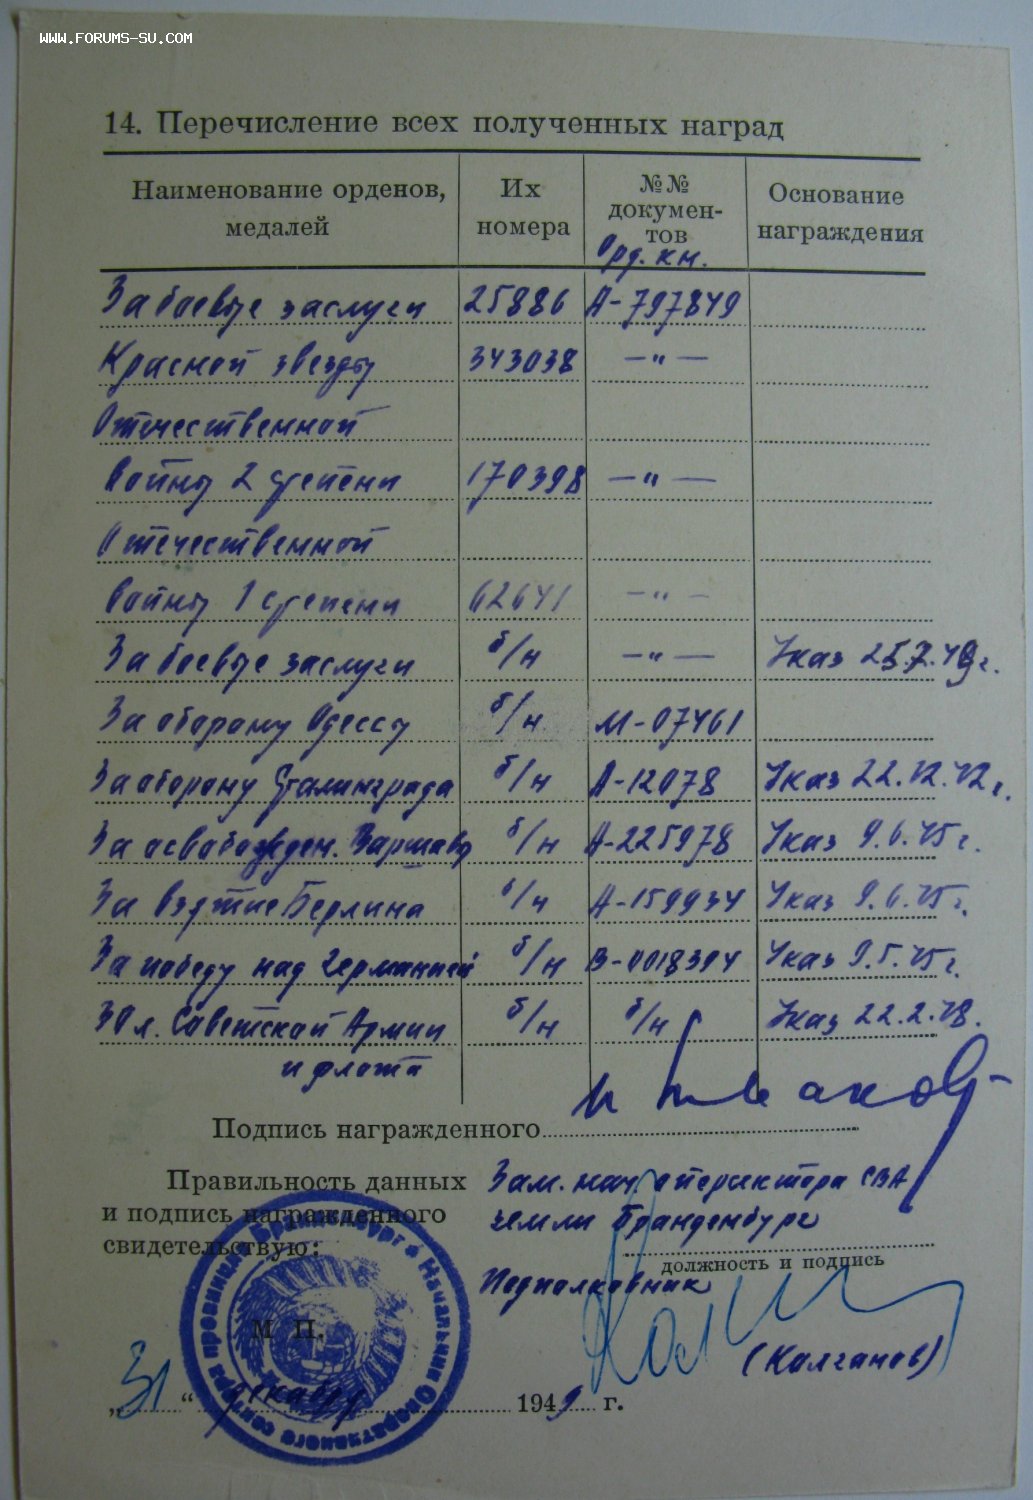 WWW.FORUMS-SU.COM
14. Перечисление всех полученных наград
Наименование орденов, медалей | Их номера | №№ докумен-тов | Основание награждения
Орд. кн.
За боевые заслуги 25886 А-797849
Красной звезды 343038 —"—
Отечественной
войны 2 степени 170398 —"—
Отечественной
войны 1 степени 62641 —"—
За боевые заслуги б/н —"— Указ
За оборону Одессы б/н М-07461
За оборону Сталинграда б/н А-12078 Указ 22.12.42г.
За освобожден. Варшавы б/н А-225978 Указ 9.6.45г.
За взятие Берлина б/н А-159934 Указ 9.6.45г.
За победу над Германией б/н В-0018394 Указ 9.5.45г.
30 л. Советской Армии б/н б/н Указ 22.2.48.
и флота
Подпись награжденного
Правильность данных
и подпись награжденного
свидетельствую:
Зам. нач. опер.сектора СВА
земли Бранденбург
должность и подпись
Подполковник
(Калганов)
М П.
„31“ декабря 1949 г.
Начальник Оперативного сектора провинции Бранденбург